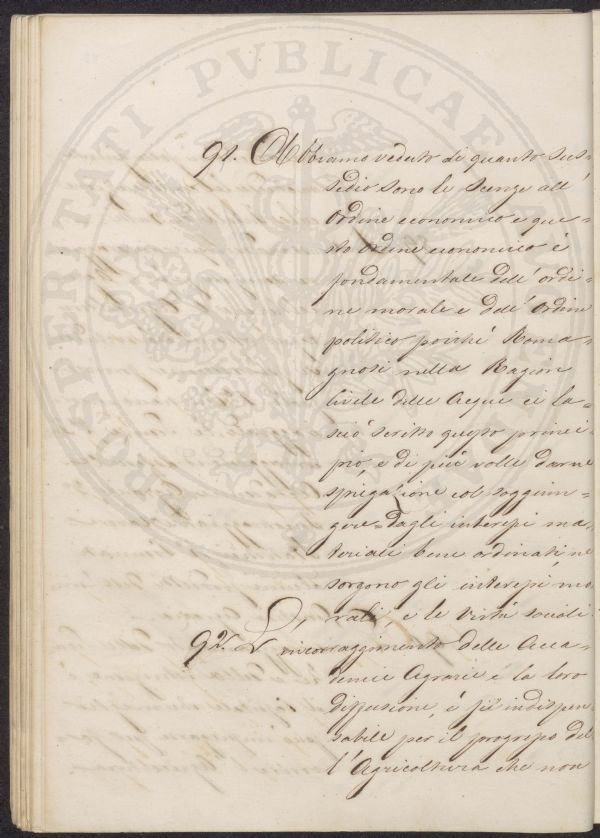 PROSPERITATI PVBLICAE AV
91. Abbiamo veduto di quanto sus-
sidio sono le scenze all'
Ordine economico e que-
sto Ordine economico è
fondamentale dell'ordi-
ne morale e dell'Ordine
politico poiché Roma-
gnosi nella Ragion
Civile delle Acque ci la-
sciò scritto questo princi-
pio, e di più volle darne
spiegazione col soggiun-
gere = dagli interessi ma-
teriali bene ordinati ne
sorgono gli interessi mo-
rali, e le virtù sociali
92. L'incorraggimento delle Acca-
demie Agrarie e la loro
diffusione, è pur indispen-
sabile per il progresso del
l'Agricoltura che non